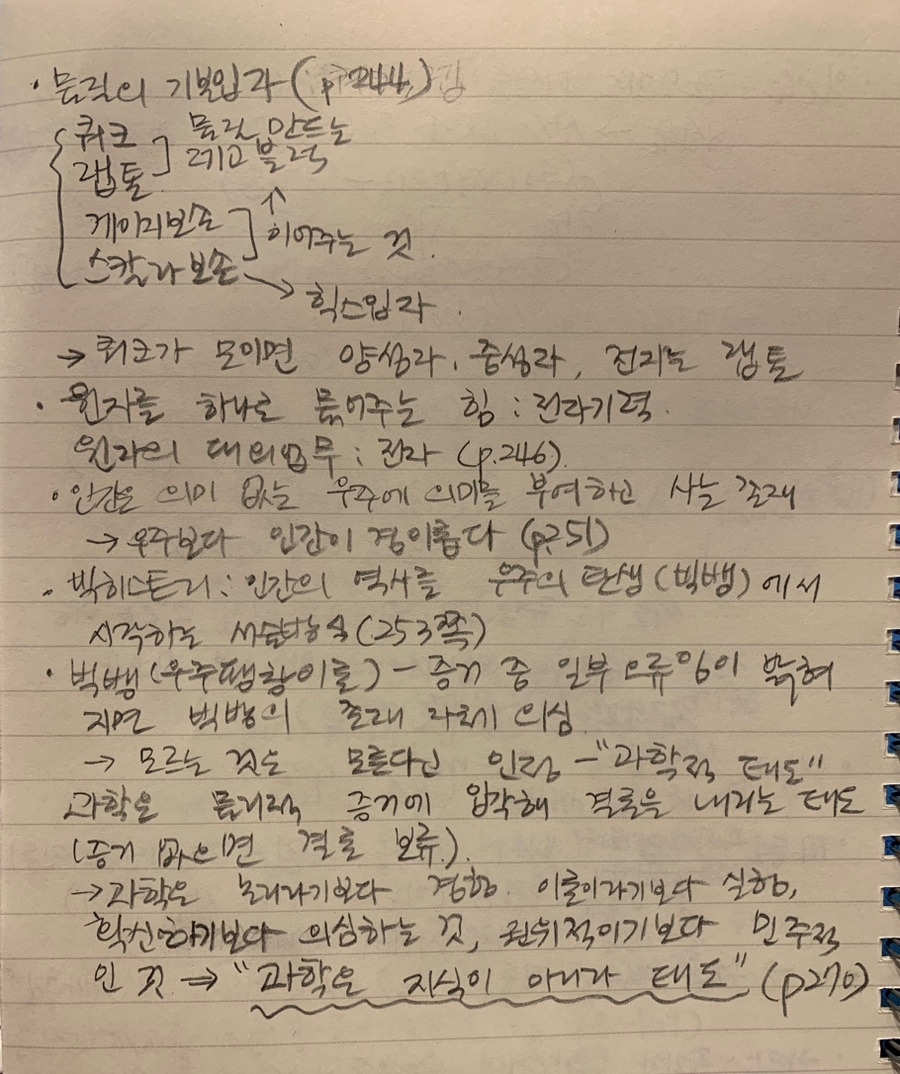 · 물질의 기본입자 (p244)
쿼크
랩톨
물질 만드는
레고 블럭
게이지보손
스칼라보손
↑
이어주는 것.
→ 힉스입자.
→ 쿼크가 모이면 양성자, 중성자, 전자는 랩톨
· 원자를 하나로 묶어주는 힘 : 전자기력.
원자의 대외업무 : 전자 (p.246).
· 인간은 의미 없는 우주에 의미를 부여하고 사는 존재
→ 우주보다 인간이 경이롭다 (p251)
· 빅히스토리 : 인간의 역사를 우주의 탄생(빅뱅)에서
시작하는 서술방식(253쪽)
· 빅뱅(우주팽창이론) - 증거 중 일부 오류임이 밝혀
지면 빅뱅의 존재 자체 의심
→ 모르는 것은 모른다고 인정 - "과학적 태도"
과학은 물리적 증거에 입각해 결론을 내리는 태도
(증거 없으면 결론 보류.).
→ 과학은 논리라기보다 경험. 이론이라기보다 실험,
확신하기보다 의심하는 것, 권위적이기보다 민주적
인 것 → "과학은 지식이 아니라 태도" (p270)